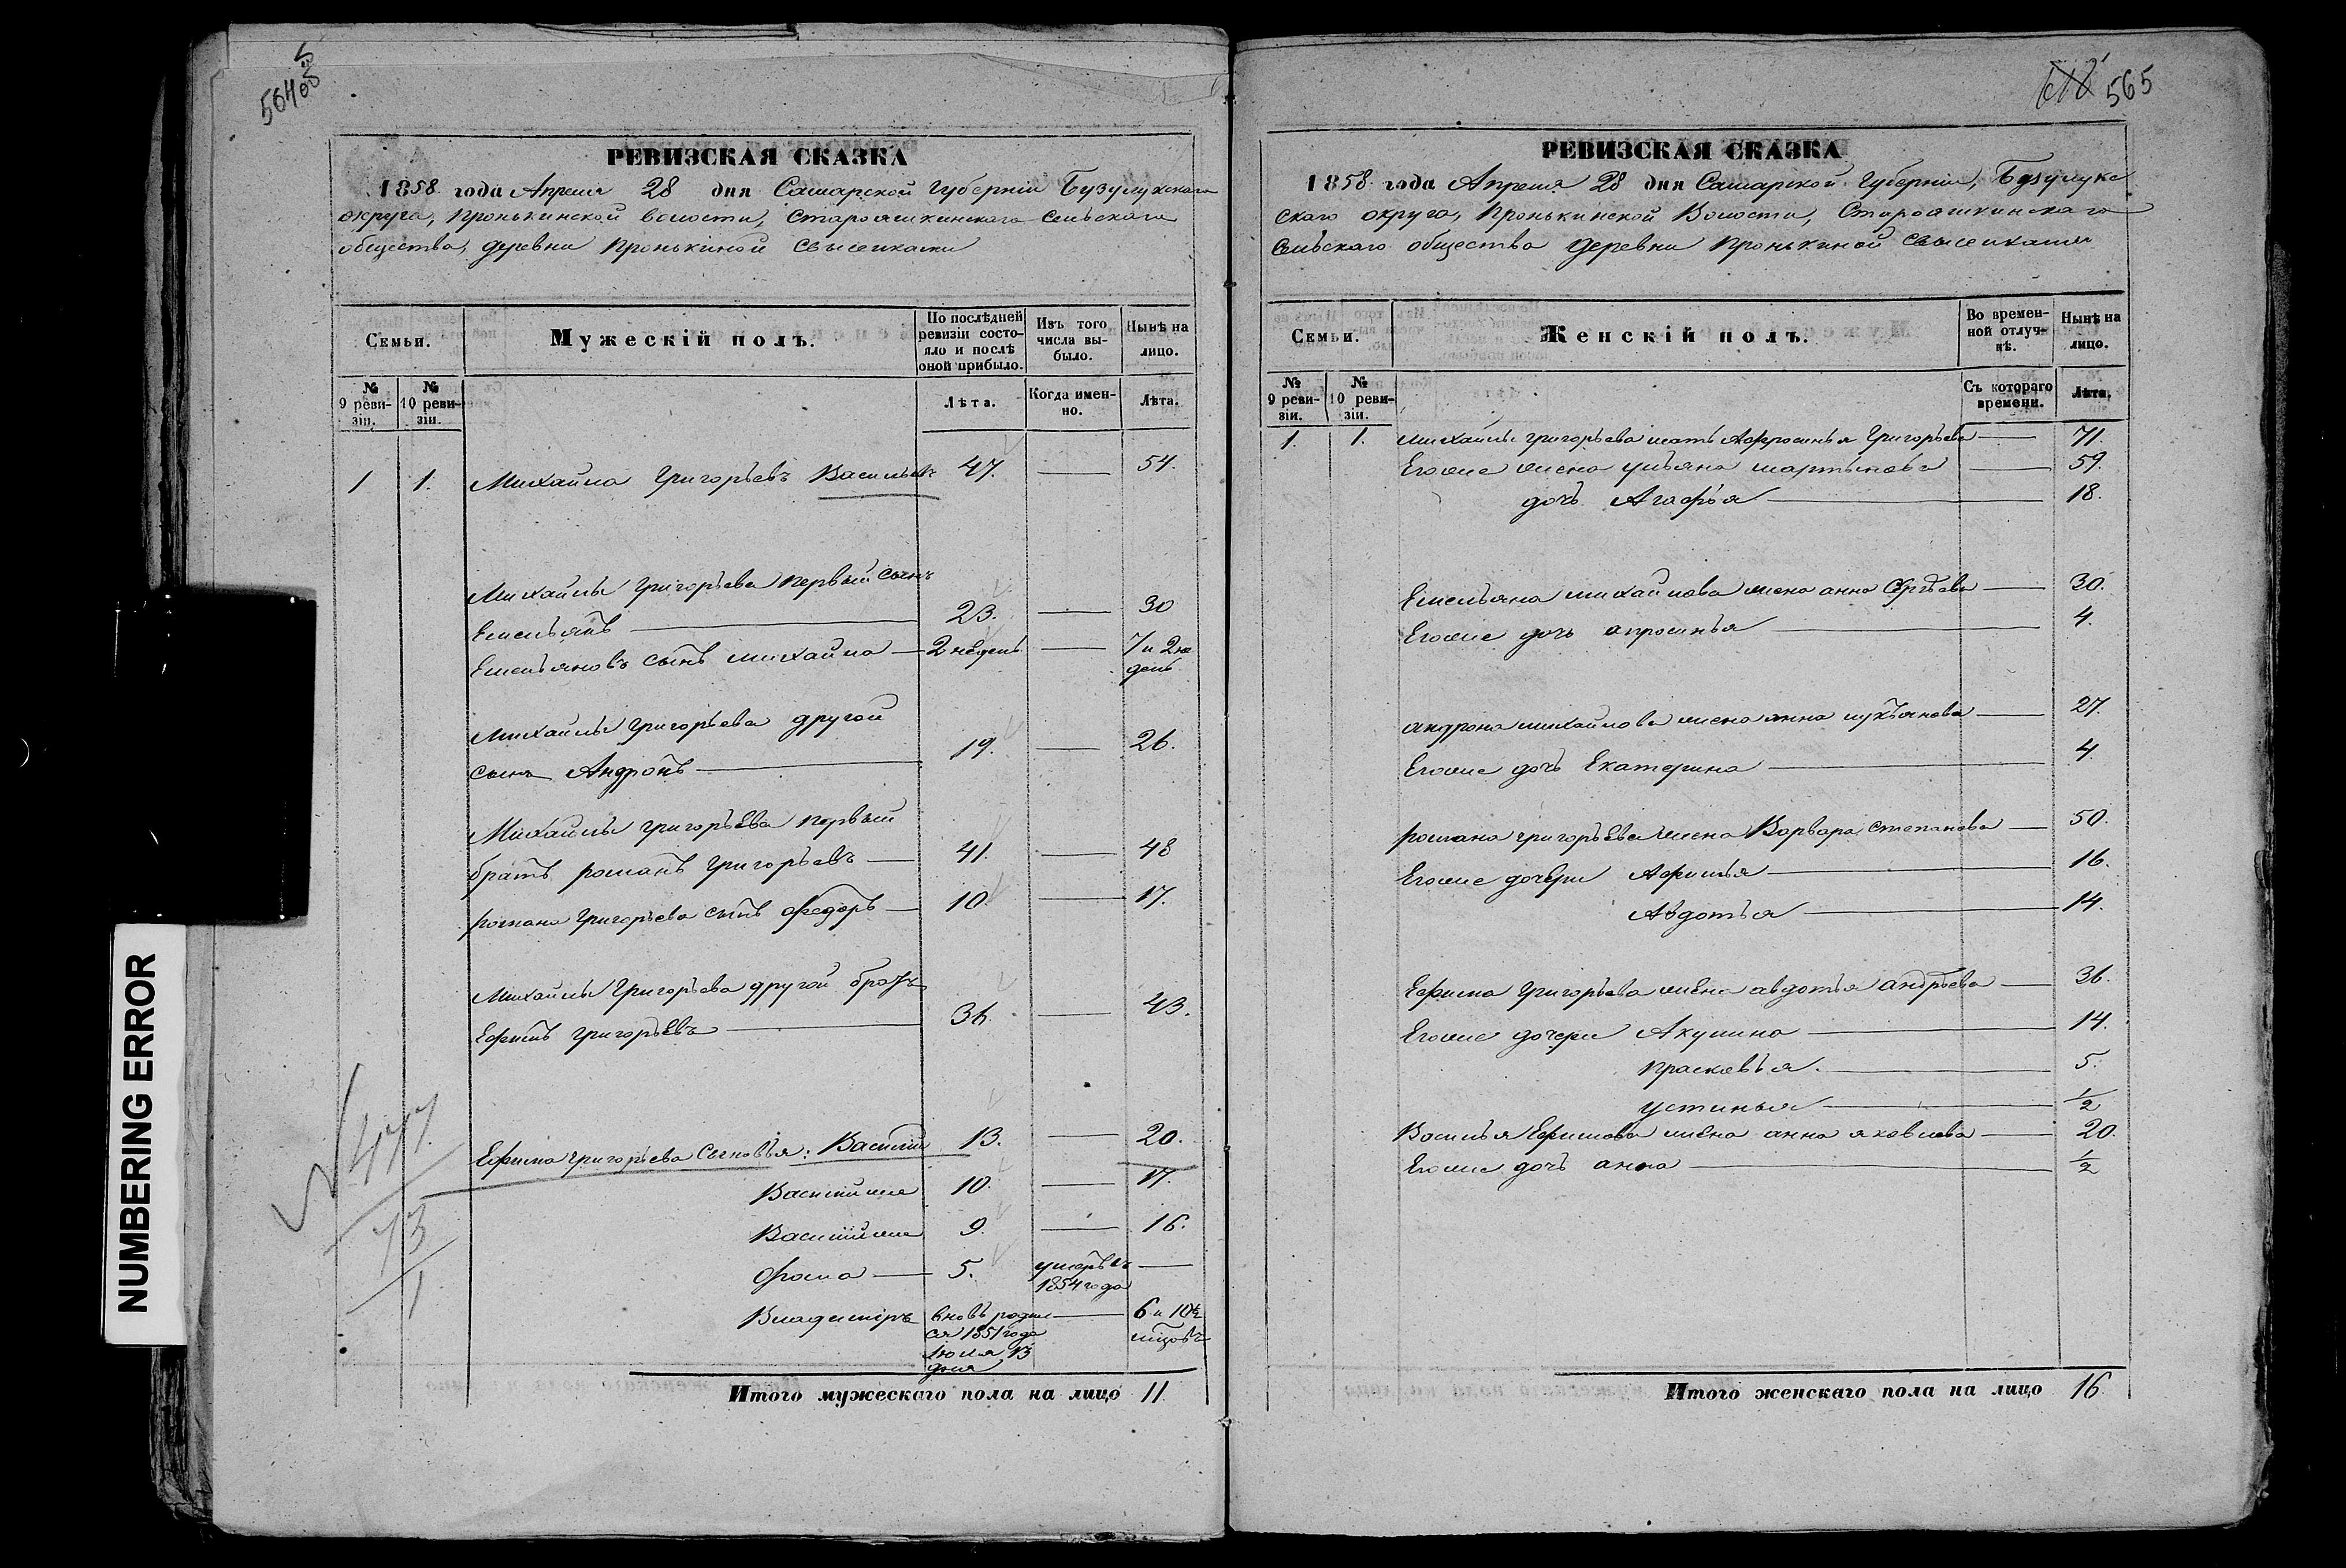 564 об
РЕВИЗСКАЯ СКАЗКА
1858 года Апреля 28 дня Самарской губернiи Бузулукскаго
округа, Пронькинской волости, Староашкинскаго сельскаго
общества, деревни Пронькиной свыселками
Семьи.
Мужескiй полъ.
По послѣдней
ревизiи состо-
яло и послѣ
оной прибыло.
Изъ того
числа вы-
было.
Нынѣ на
лицо.
№
9 реви-
зiи.
№
10 реви-
зiи.
Лѣта.
Когда имен-
но.
Лѣта.
1 1. Михайла Григорьевъ Васильевъ 47. 54.
Михайлы Григорьева первый сынъ
Емельянъ 23. 30
Емельяновъ сынъ михайла 2 недель 7 и 2 не
дель
Михайлы Григорьева другой
сынъ Андронъ 19. 26.
Михайлы григорьева первый
братъ романъ Григорьевъ 41. 48
романа Григорьева сынъ Федоръ 10. 17.
Михайлы Григорьева другой братъ
Ефимъ григорьевъ 36. 43.
Ефима григорьева сыновья: Василiй 13. 20.
Василiйже 10. 17.
Василiйже 9. 16.
Фома 5. умеръ въ
1854 года
Владимiръ вновь родил
ся 1851 года
Июля 13
дня
6 и 10½
мцовъ
477
73
1
Итого мужескаго пола на лицо 11
565
РЕВИЗСКАЯ СКАЗКА
1858 года Апреля 28 дня Самарской Губернiи, Бузулук
скаго округа, Пронькинской Волости, Староашкинскаго
сельскаго общества деревни Пронькиной свыселками
Семьи.
Женскiй полъ.
Во времен-
ной отлуч-
кѣ.
Нынѣ на
лицо.
№
9 реви-
зiи.
№
10 реви-
зiи.
Съ котораго
времени.
Лѣта.
1. 1. Михайлы григорьева мать Афросинья Григорьева 71.
Егоже жена ульяна мартынова 59.
дочь Агафья 18.
Емельяна михайлова жена анна Сергѣева 30.
Егоже дочь апросинья 4.
андрона михайлова жена анна лукьянова 27.
Егоже дочь Екатерина 4.
романа григорьева жена Варвара степанова 50.
Егоже дочери Афимья 16.
Авдотья 14.
Ефима Григорьева жена авдотья андрѣева 36.
Егоже дочери Акулина 14.
Прасковья 5.
устинья ½
Василья Ефимова жена анна яковлева 20.
Егоже дочь анна ½
Итого женскаго пола на лицо 16
NUMBERING ERROR